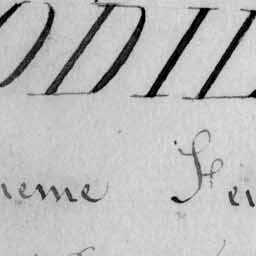 ODIL
neme Fei